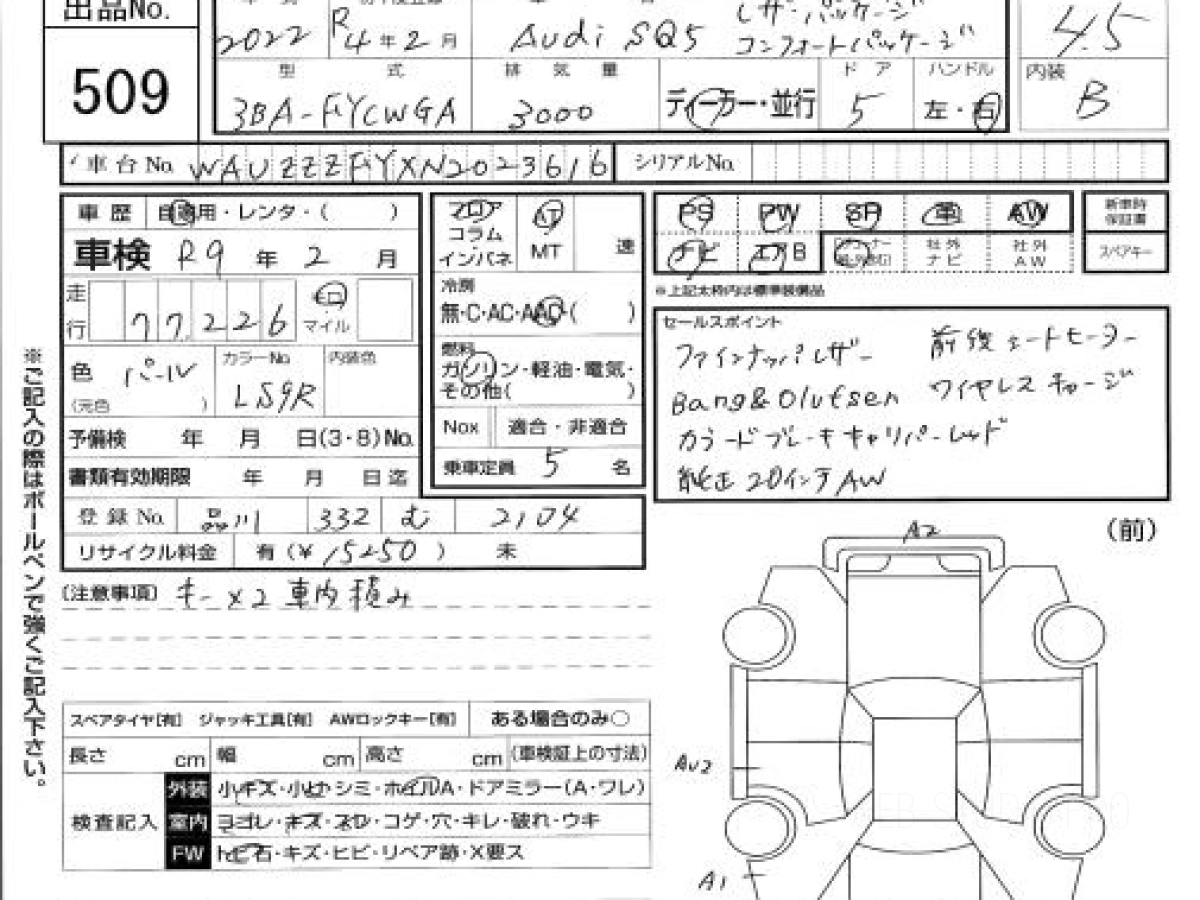 出品No.
509
2022 R4年2月 Audi SQ5 レザーパッケージ
コンフォートパッケージ
4.5
型 式 排 気 量 ド ア ハンドル 内装
3BA-FYCWGA 3000 ディーラー・並行 5 左・右 B
車台No. WAUZZZFYXN2023616 シリアルNo.
車歴 自適用・レンタ・( )
車検 R9年2月
走行 77,226 キロ マイル
色 パール カラーNo. LS9R 内装色
(元色 )
予備検 年 月 日(3・8)No.
書類有効期限 年 月 日迄
登録No. 品川 332 む 2104
リサイクル料金 有(¥15250) 未
フロア AT
コラム
インパネ MT 速
冷房
無・C・AC・AAC・( )
燃料
ガソリン・軽油・電気・
その他( )
Nox 適合・非適合
乗車定員 5 名
PS PW SR 革 AW 新車時保証書
ナビ エアB 社外ナビ 社外AW スペアキー
※上記太枠内は標準装備品
セールスポイント
ファインナッパレザー 前後シートヒーター
Bang&Olufsen ワイヤレスチャージ
カラードブレーキキャリパーレッド
純正20インチAW
(注意事項) キー×2 車内積み
※ご記入の際はボールペンで強くご記入下さい。
スペアタイヤ[有] ジャッキ工具[有] AWロックキー[有] ある場合のみ○
長さ cm 幅 cm 高さ cm (車検証上の寸法)
検査記入
外装 小キズ・小凹・シミ・ホイルA・ドアミラー(A・ワレ)
室内 ヨゴレ・キズ・スレ・コゲ・穴・キレ・破れ・ウキ
FW トビ石・キズ・ヒビ・リペア跡・X要ス
(前)
A2
AU2
A1